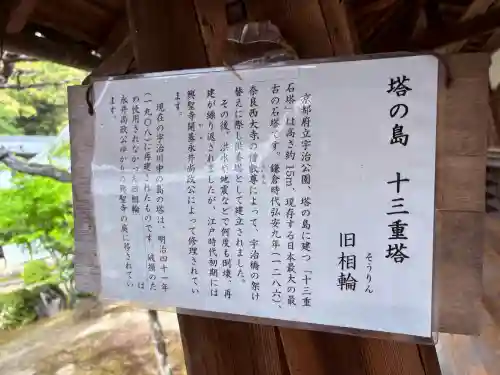 塔の島 十三重塔
そうりん
旧相輪
京都府立宇治公園、塔の島に建つ「十三重
石塔」は高さ約15m、現存する日本最大の最
古の石塔です。鎌倉時代弘安九年(一二八六)、
奈良西大寺の僧叡尊によって、宇治橋の架け
替えに際し
として建立されました。
その後、洪水や地震などで何度も倒壊、再
建が繰り返されましたが、江戸時代初期には
興聖寺開基永井尚政公によって修理されてい
ます。
現在の宇治川中の島の塔は、明治四十一年
(一九〇八)に再建されたものです。破損のた
め使用されなかった旧相輪
は
永井尚政公ゆかりの興聖寺の庭に移されてい
ます。